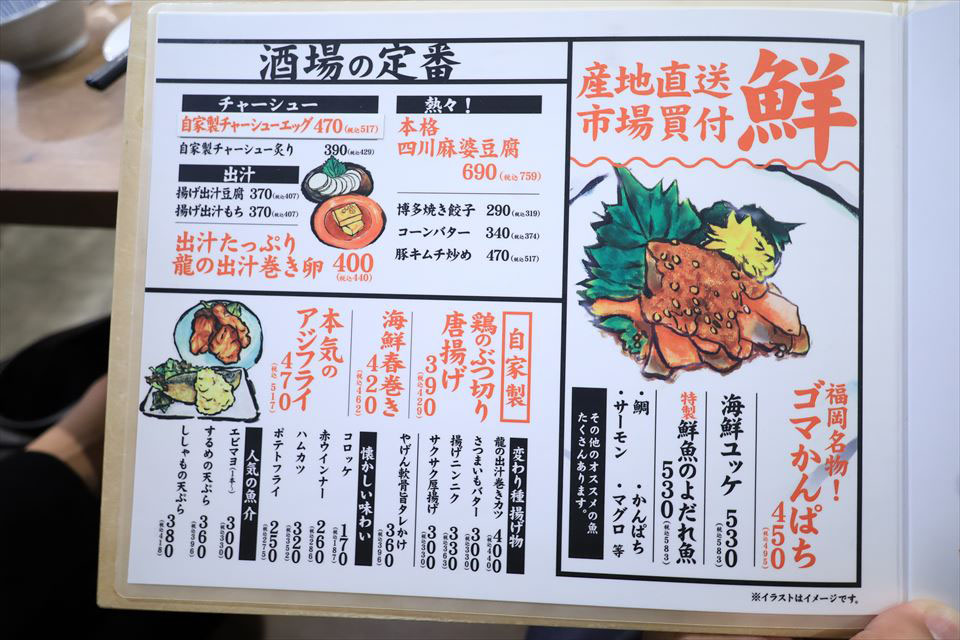 酒場の定番
チャーシュー
自家製チャーシューエッグ 470(税込517)
自家製チャーシュー炙り 390(税込429)
出汁
揚げ出汁豆腐 370(税込407)
揚げ出汁もち 370(税込407)
出汁たっぷり
龍の出汁巻き卵 400
(税込440)
熱々!
本格
四川麻婆豆腐
690(税込759)
博多焼き餃子 290(税込319)
コーンバター 340(税込374)
豚キムチ炒め 470(税込517)
産地直送
市場買付
鮮
福岡名物!
ゴマかんぱち
450
(税込495)
海鮮ユッケ 530
(税込583)
特製 鮮魚のよだれ魚
530(税込583)
・鯛 ・かんぱち
・サーモン ・マグロ 等
その他のオススメの魚
たくさんあります。
自家製
鶏のぶつ切り
唐揚げ 390
(税込429)
海鮮春巻き
420
(税込462)
本気の
アジフライ
470
(税込517)
変わり種 揚げ物
龍の出汁巻きカツ 400(税込440)
さつまいもバター 300(税込330)
揚げニンニク 330(税込363)
サクサク厚揚げ 300(税込330)
やげん軟骨旨タレかけ 360(税込396)
懐かしい味わい
コロッケ 170(税込187)
赤ウインナー 260(税込286)
ハムカツ 320(税込352)
ポテトフライ 250(税込275)
人気の魚介
エビマヨ(1本〜) 300(税込330)
するめの天ぷら 360(税込396)
ししゃもの天ぷら 380(税込418)
※イラストはイメージです。